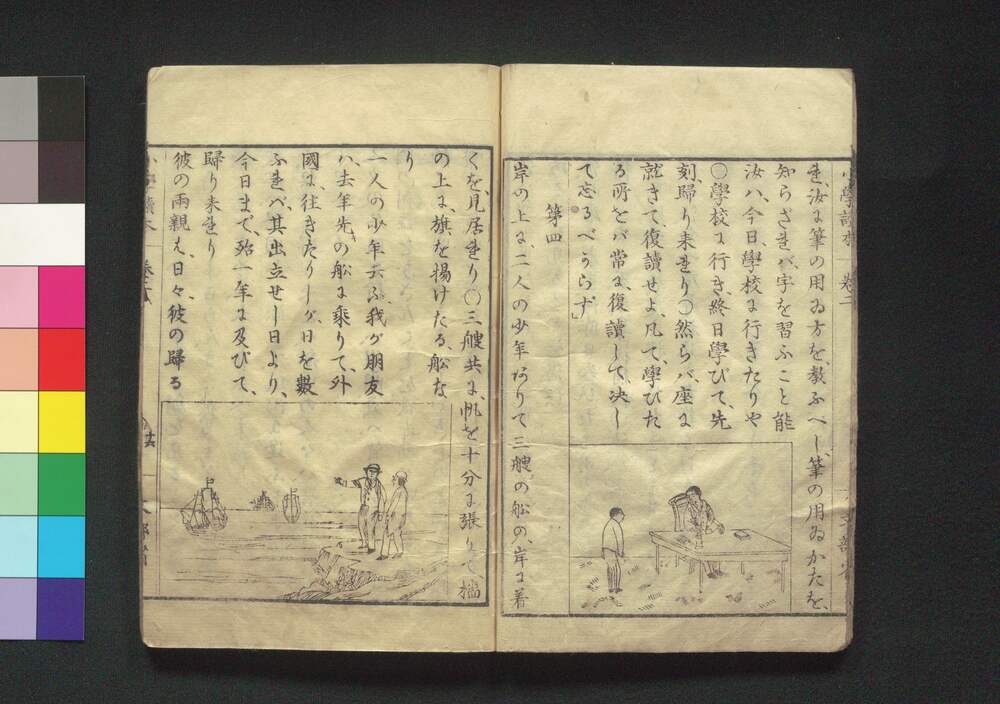 れば、汝に筆の用ゐ方を、教ふべし、筆の用ゐかたを、
知らざれバ、字を習ふこと能
汝ハ、今日、學校に行きたりや
〇學校に行き、終日學びて、先
刻、歸り来れり〇然らバ座に
就きて、復讀せよ、凡て、學びた
る所をバ常に復讀して、決し
て忘るべからず」
第四
岸の上に、二人の少年ありて三艘の舩の、岸に着
くを、見居れり〇三艘共に、帆を十分に張りて、檣
の上に、旗を揚けたる、舩な
り
一人の少年云ふ我が朋友
ハ、去年先きの舩に乘りて、外
國に、往きたりしが、日を數
ふれバ、其出立せし日より、
今日まで、殆一年に及びて、
歸り来れり
彼の両親も、日々、彼の歸る